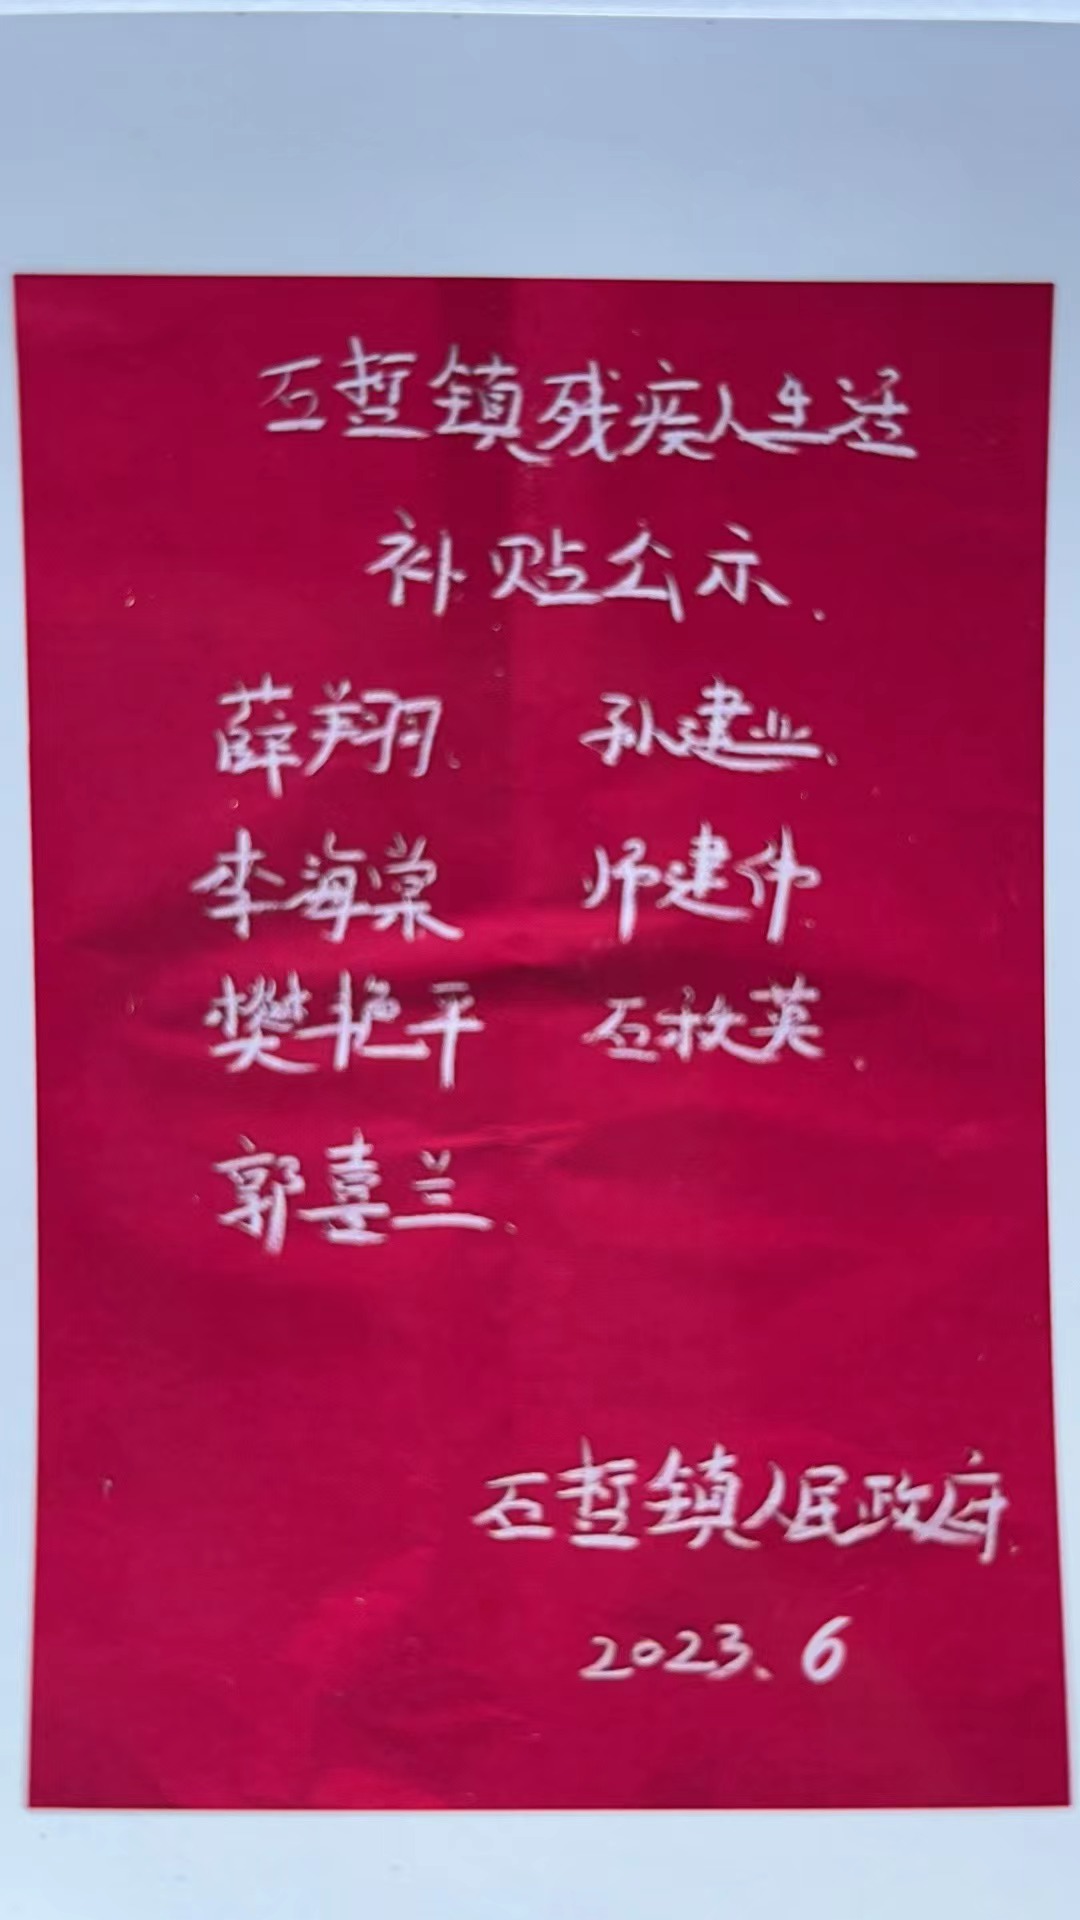 石哲镇残疾人生活
补贴公示
薛翔 孙建业
李海棠 师建伟
樊艳平 石秋英
郭喜兰
石哲镇人民政府
2023、6